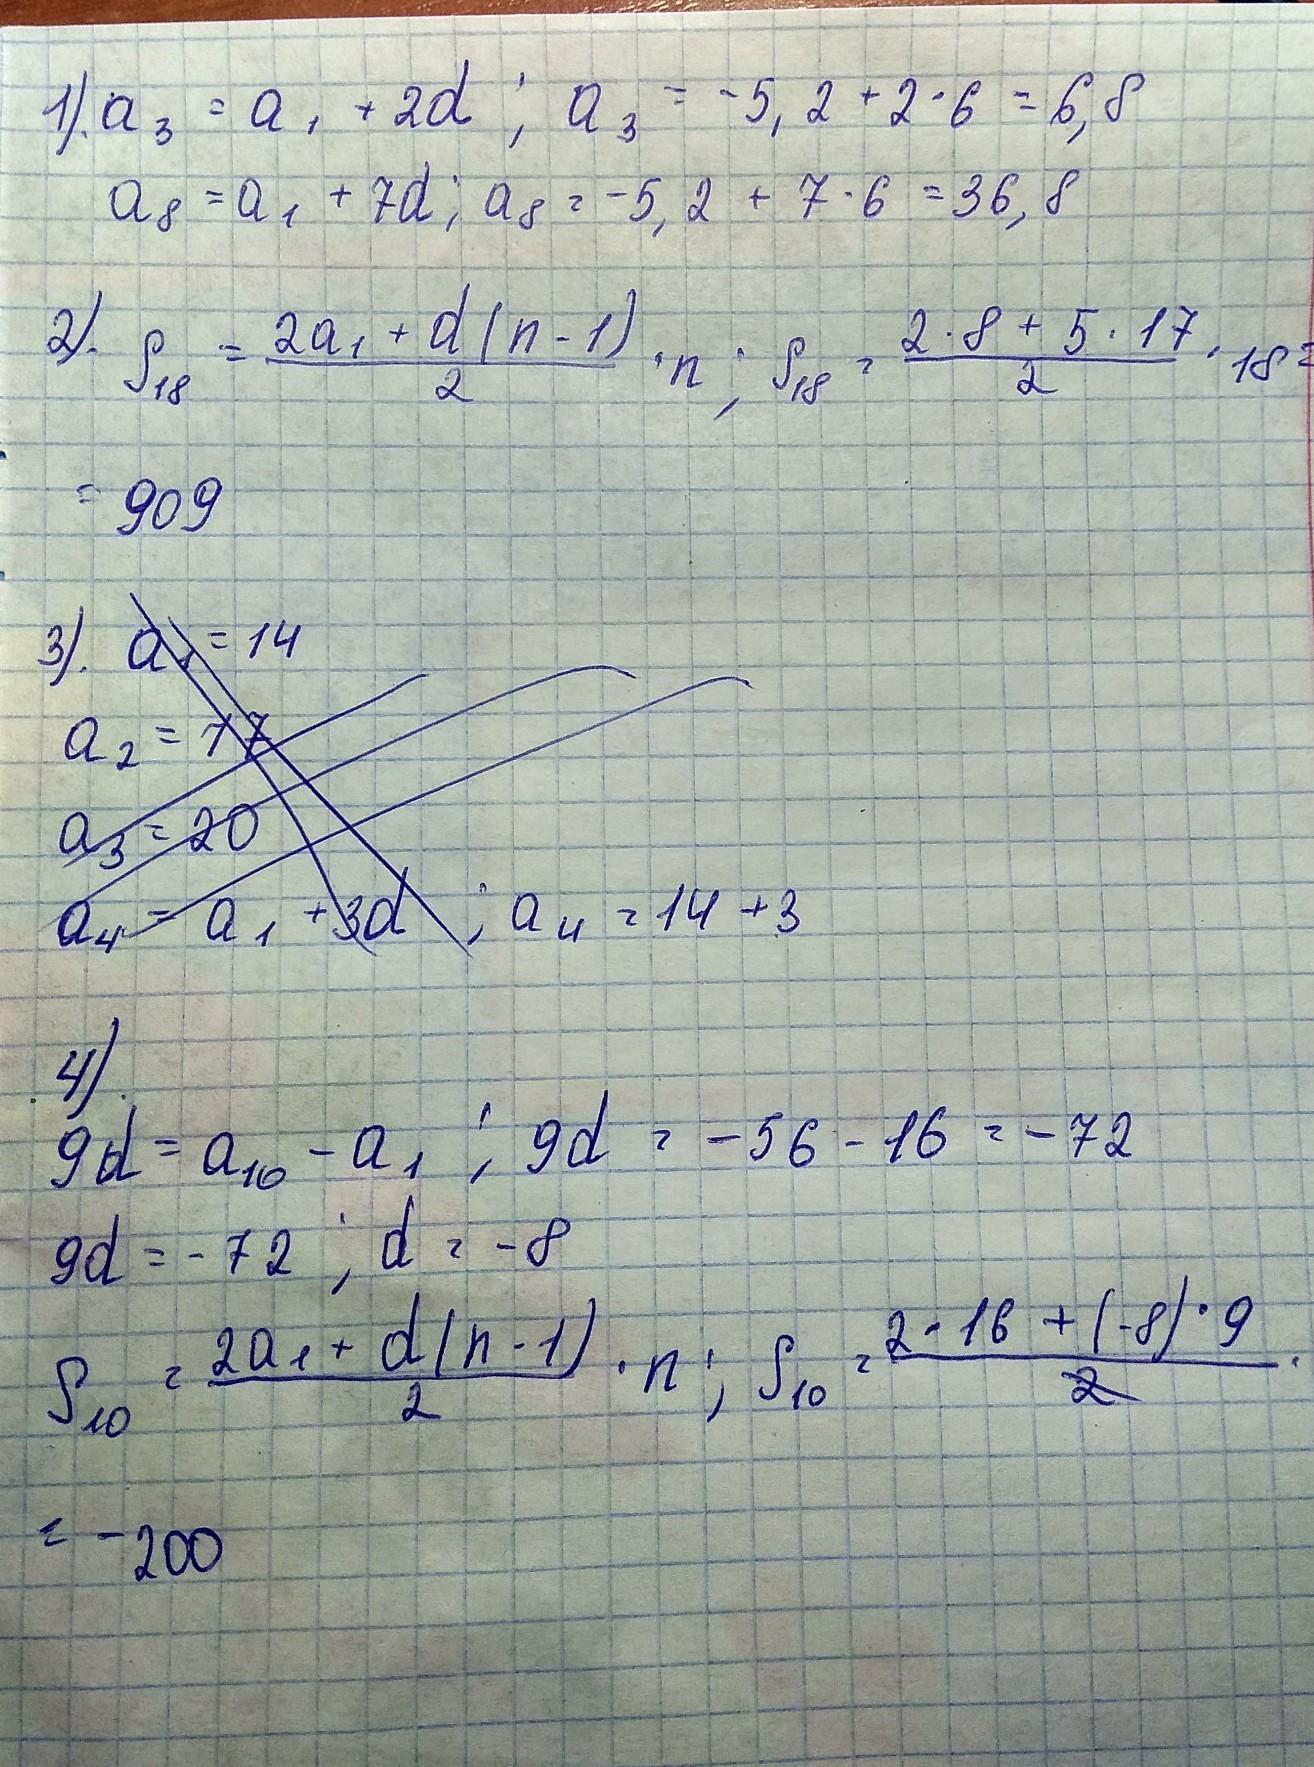 1). a₃ = a₁ + 2d ; a₃ = -5,2 + 2·6 = 6,8
a₈ = a₁ + 7d ; a₈ = -5,2 + 7·6 = 36,8
2). S₁₈ = (2a₁ + d(n-1))/2 · n ; S₁₈ = (2·8 + 5·17)/2 · 18 =
= 909
3). a₁ = 14
a₂ = 17
a₃ = 20
a₄ = a₁ + 3d ; a₄ = 14 + 3
4).
9d = a₁₀ - a₁ ; 9d = -56 - 16 = -72
9d = -72 ; d = -8
S₁₀ = (2a₁ + d(n-1))/2 · n ; S₁₀ = (2·16 + (-8)·9)/2 ·
= -200